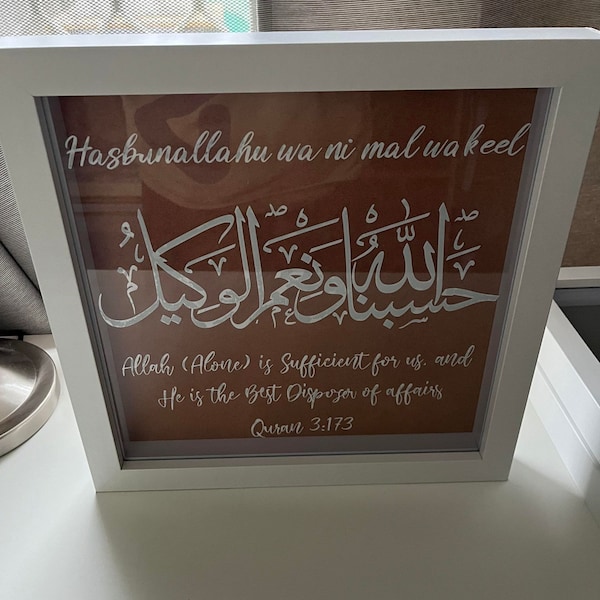 Hasbunallahu wa ni mal wakeel
حسبنا الله ونعم الوكيل
Allah (Alone) is Sufficient for us, and
He is the Best Disposer of affairs
Quran 3:173